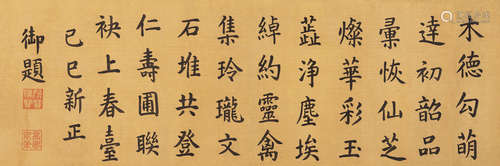 木德勾萌
逹初韶品
彙恢仙芝
燦華彩玉
蕋淨塵埃
綽約靈禽
集玲瓏文
石堆共登
仁壽圃聯
袂上春臺
己巳新正
御題